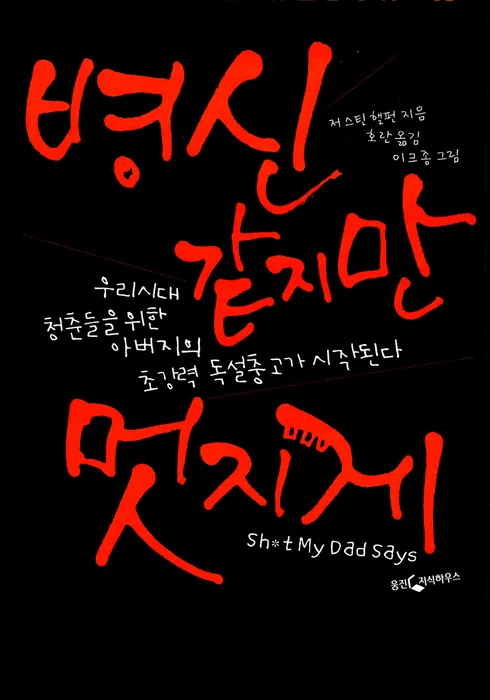 병신
저스틴 핼펀 지음
호란 옮김
이크종 그림
같지만
우리시대
청춘들을 위한
아버지의
초강력 독설충고가 시작된다
멋지게
Sh*t My Dad Says
웅진 지식하우스